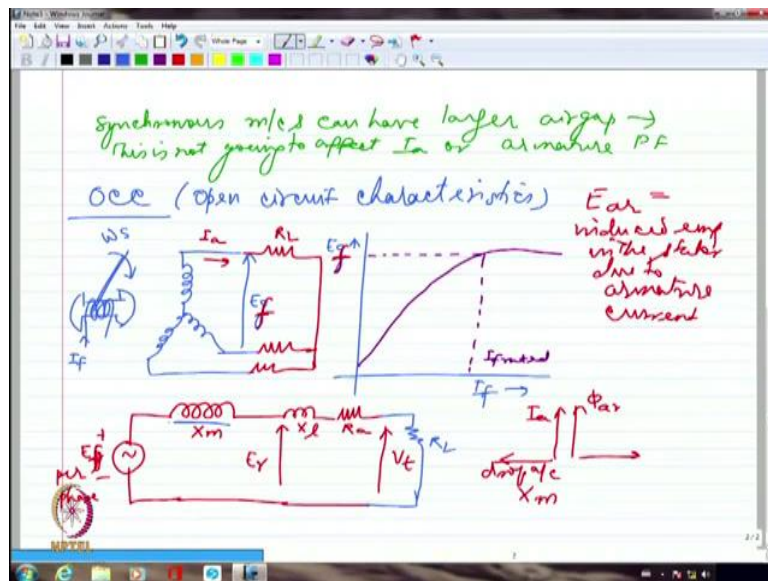 Note1 - Windows Journal
File Edit View Insert Actions Tools Help
Whole Page
B I
synchronous m/cs can have larger airgap →
This is not going to affect Ia or armature PF
OCC (open circuit characteristics)
Ear =
induced emf
in the stator
due to
armature
current
ωs
If
Ia
RL
Ef
Ef
If rated
If →
Ef
per
phase
+
-
Xm
Er
Xl
Ra
Vt
RL
Ia
Φar
drop a/c
Xm
NPTEL
2/2